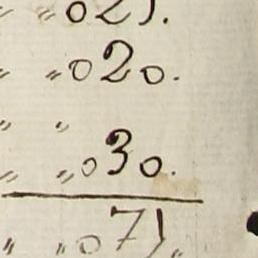 " "025.
" "020.
" "
" "030.
" "075.